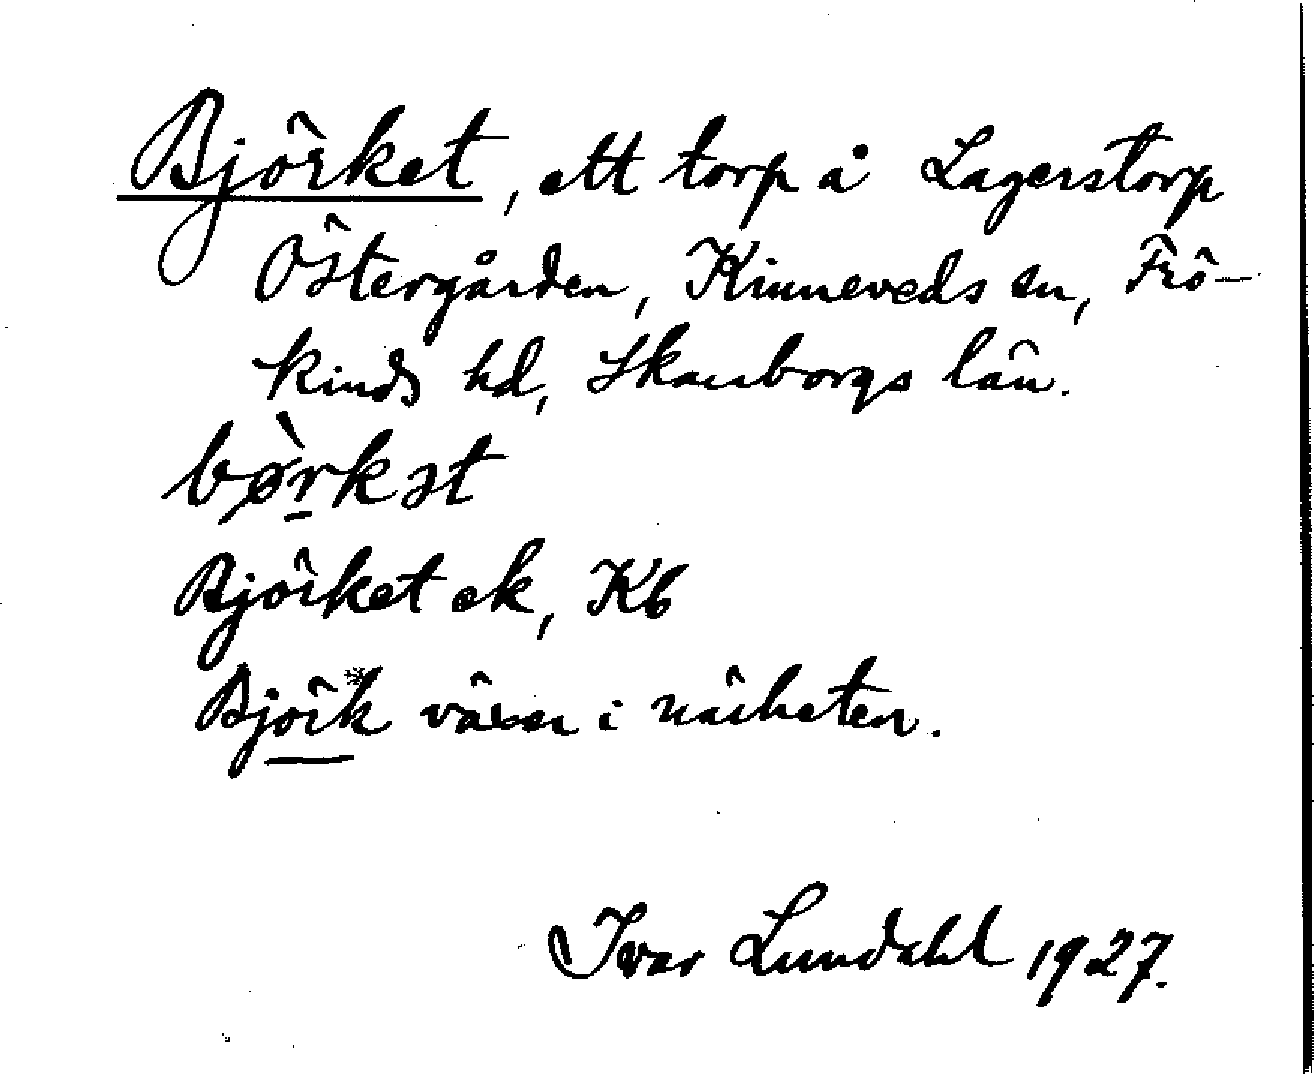 Björket, ett torp å Lagerstorp
Östergården, Kinneveds sn, Frö-
kinds hd, Skaraborgs län.
Björket ek, Kb
Björk växer i närheten.
Ivar Lundahl 1927.